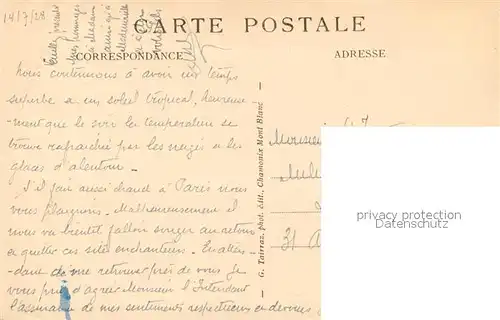 14/7/28
CARTE POSTALE
CORRESPONDANCE
ADRESSE
Nous continuons à avoir un temps
superbe et un soleil tropical, heureuse-
-ment que le soir la température se
trouve rafraichie par les neiges et les
glaces d'alentour.
S'il fait aussi chaud à Paris nous
vous plaignons. Malheureusement il
nous va bientôt falloir songer au retour
et quitter ces sites enchanteurs. En atten-
-dant de me retrouver près de vous je
vous prie d'agréer Monsieur l'Intendant
l'assurance de mes sentiments respectueux et dévoués
Veuillez présenter
mes hommages
à Madame
ainsi qu'à
Mademoiselle
G. Tairraz, phot. édit., Chamonix Mont Blanc
Monsieur
31
privacy protection
Datenschutz